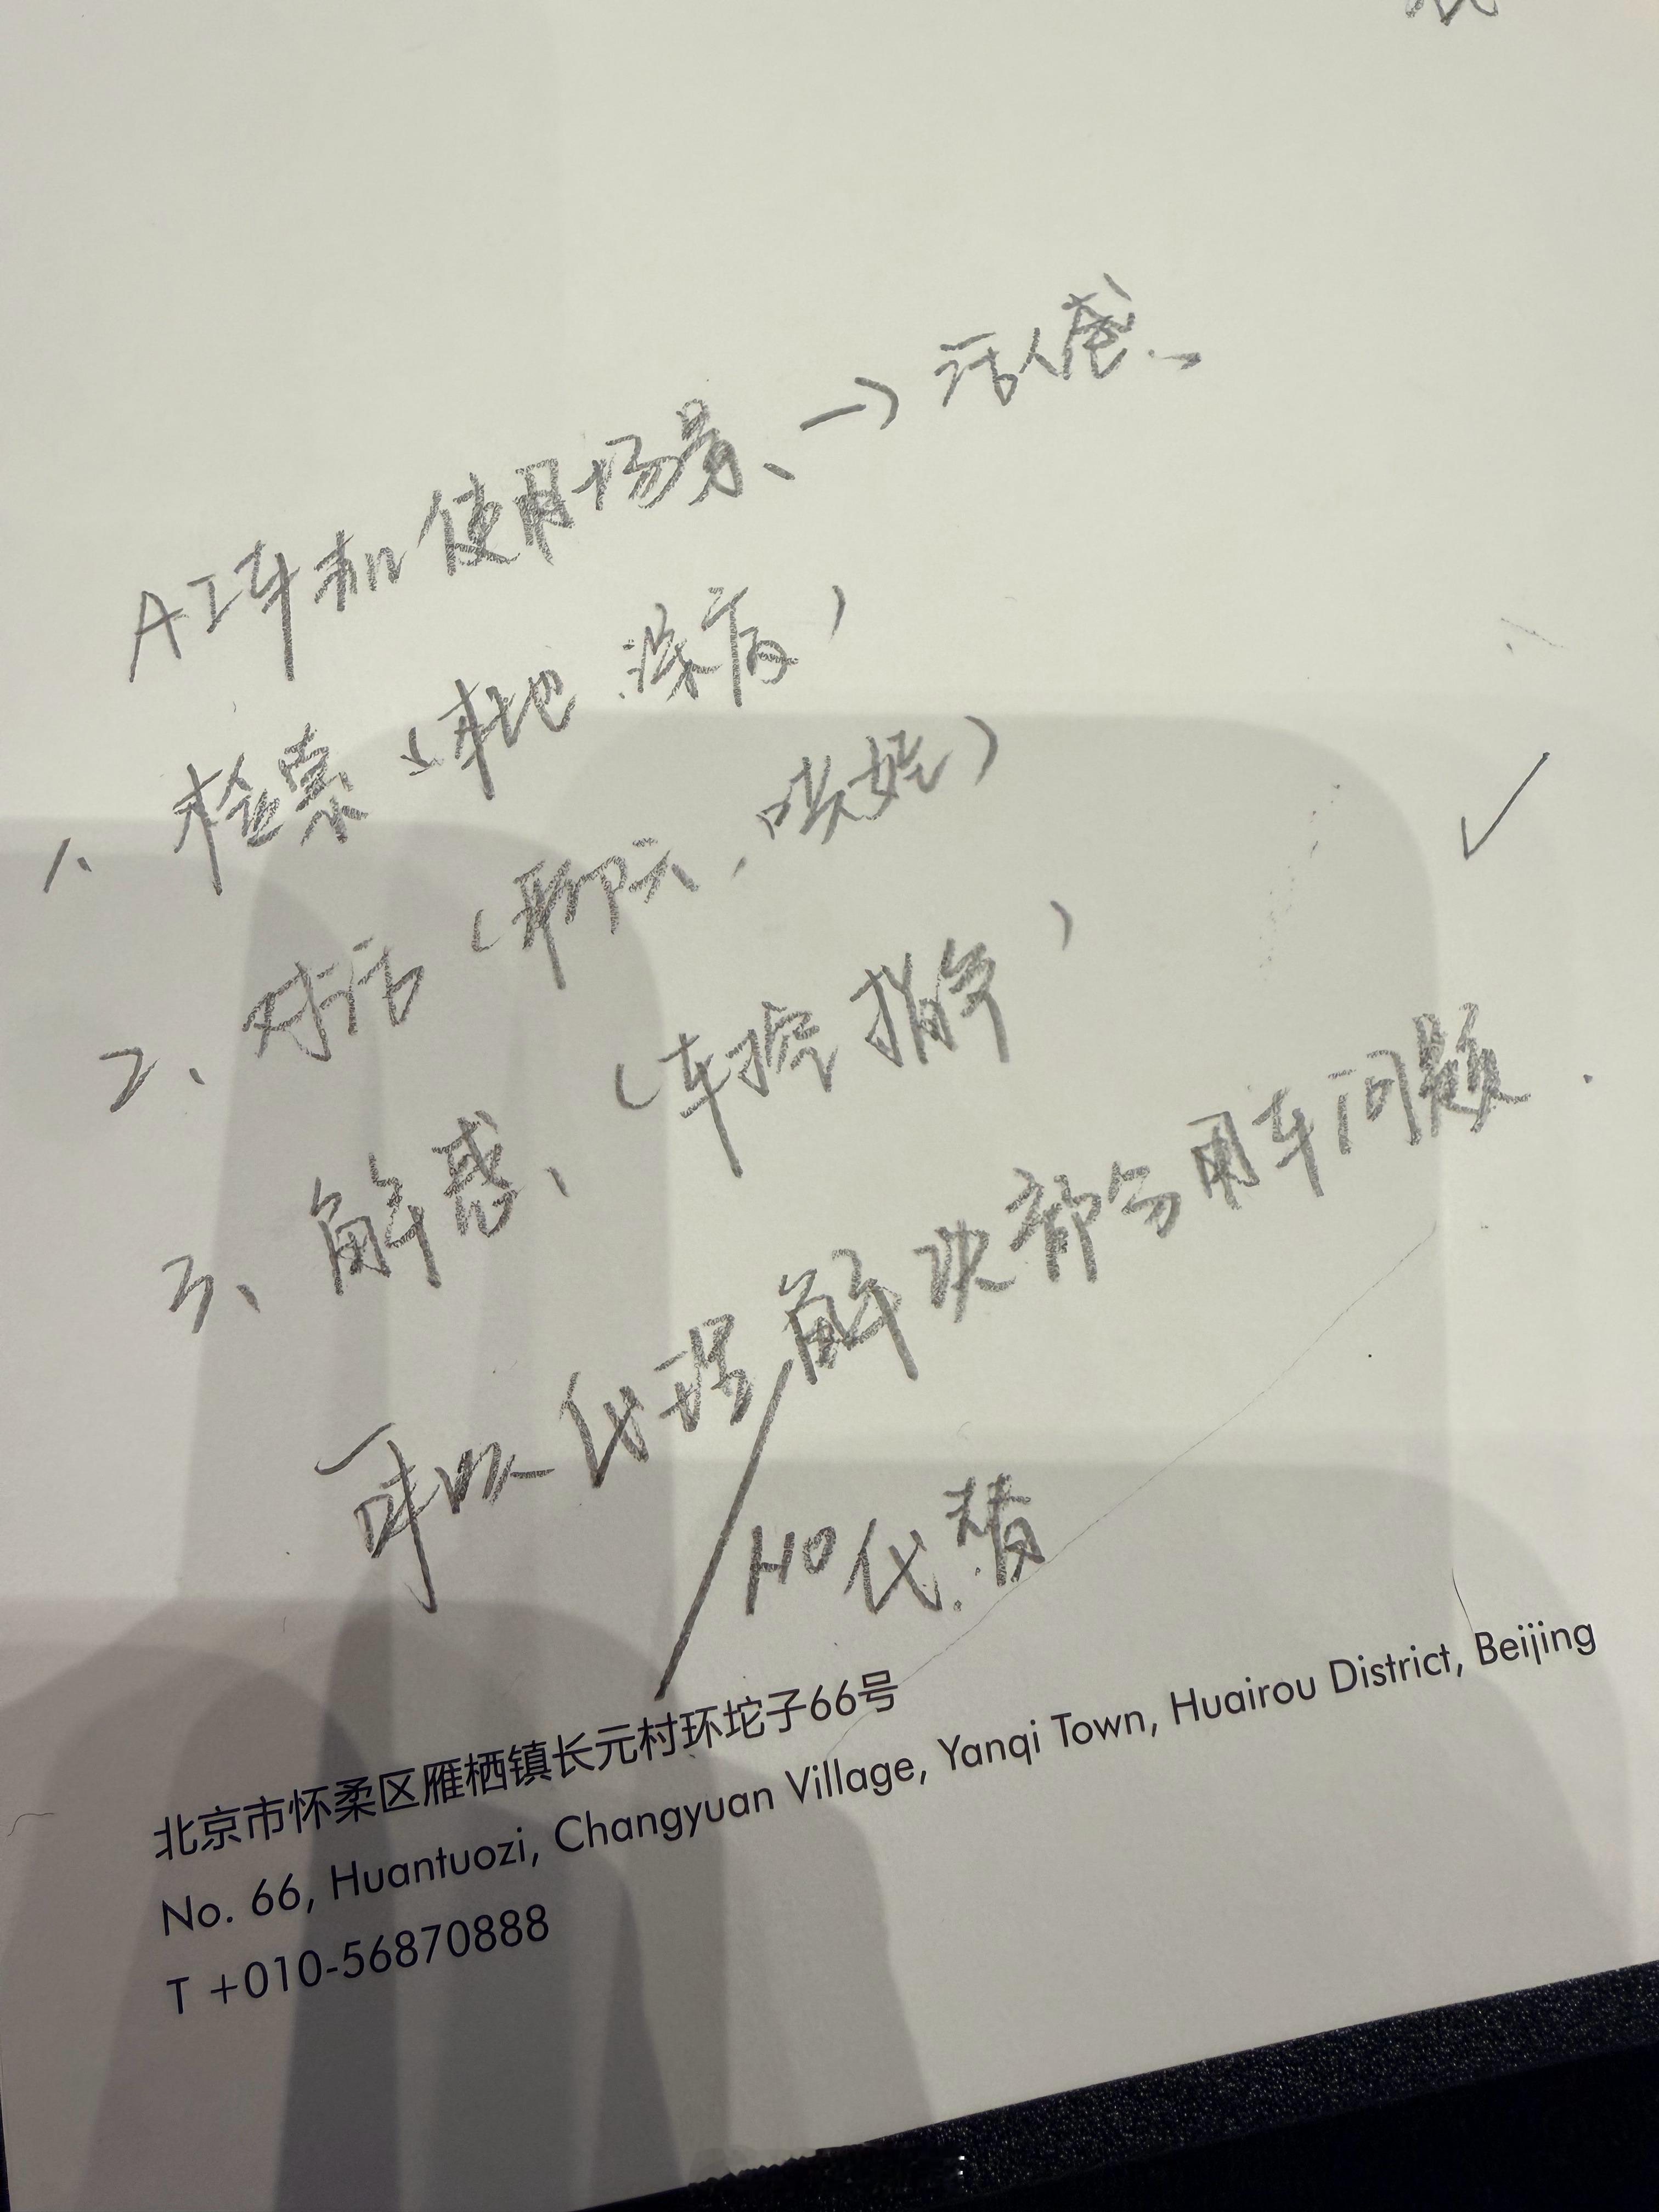 AI车机使用场景、→活人感、
1、检索（本地 深度）
2、对话（聊天，哄娃）
3、解惑、（车控指令）
可以代理解决部分用车问题.
NO代替
北京市怀柔区雁栖镇长元村环坨子66号
No. 66, Huantuozi, Changyuan Village, Yanqi Town, Huairou District, Beijing
T +010-56870888